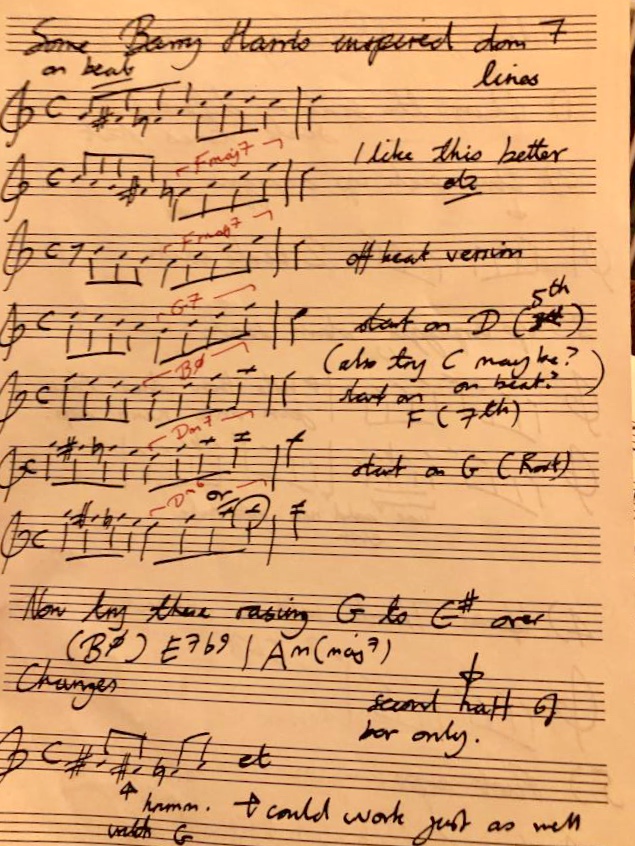 Some Barry Harris inspired dom 7
lines
on beat
Fmaj7
I like this better
Fmaj7
off beat version
G7
5th
start on D ( )
(also try C maybe?
on beat?)
BØ
start on
F (7th)
Dm7
start on G (Root)
Dm6
or
Now try these rasing G to G# over
(BØ) E7b9 | Am(maj7)
Changes
second half of
bar only.
et
hmmm. could work just as well
with G